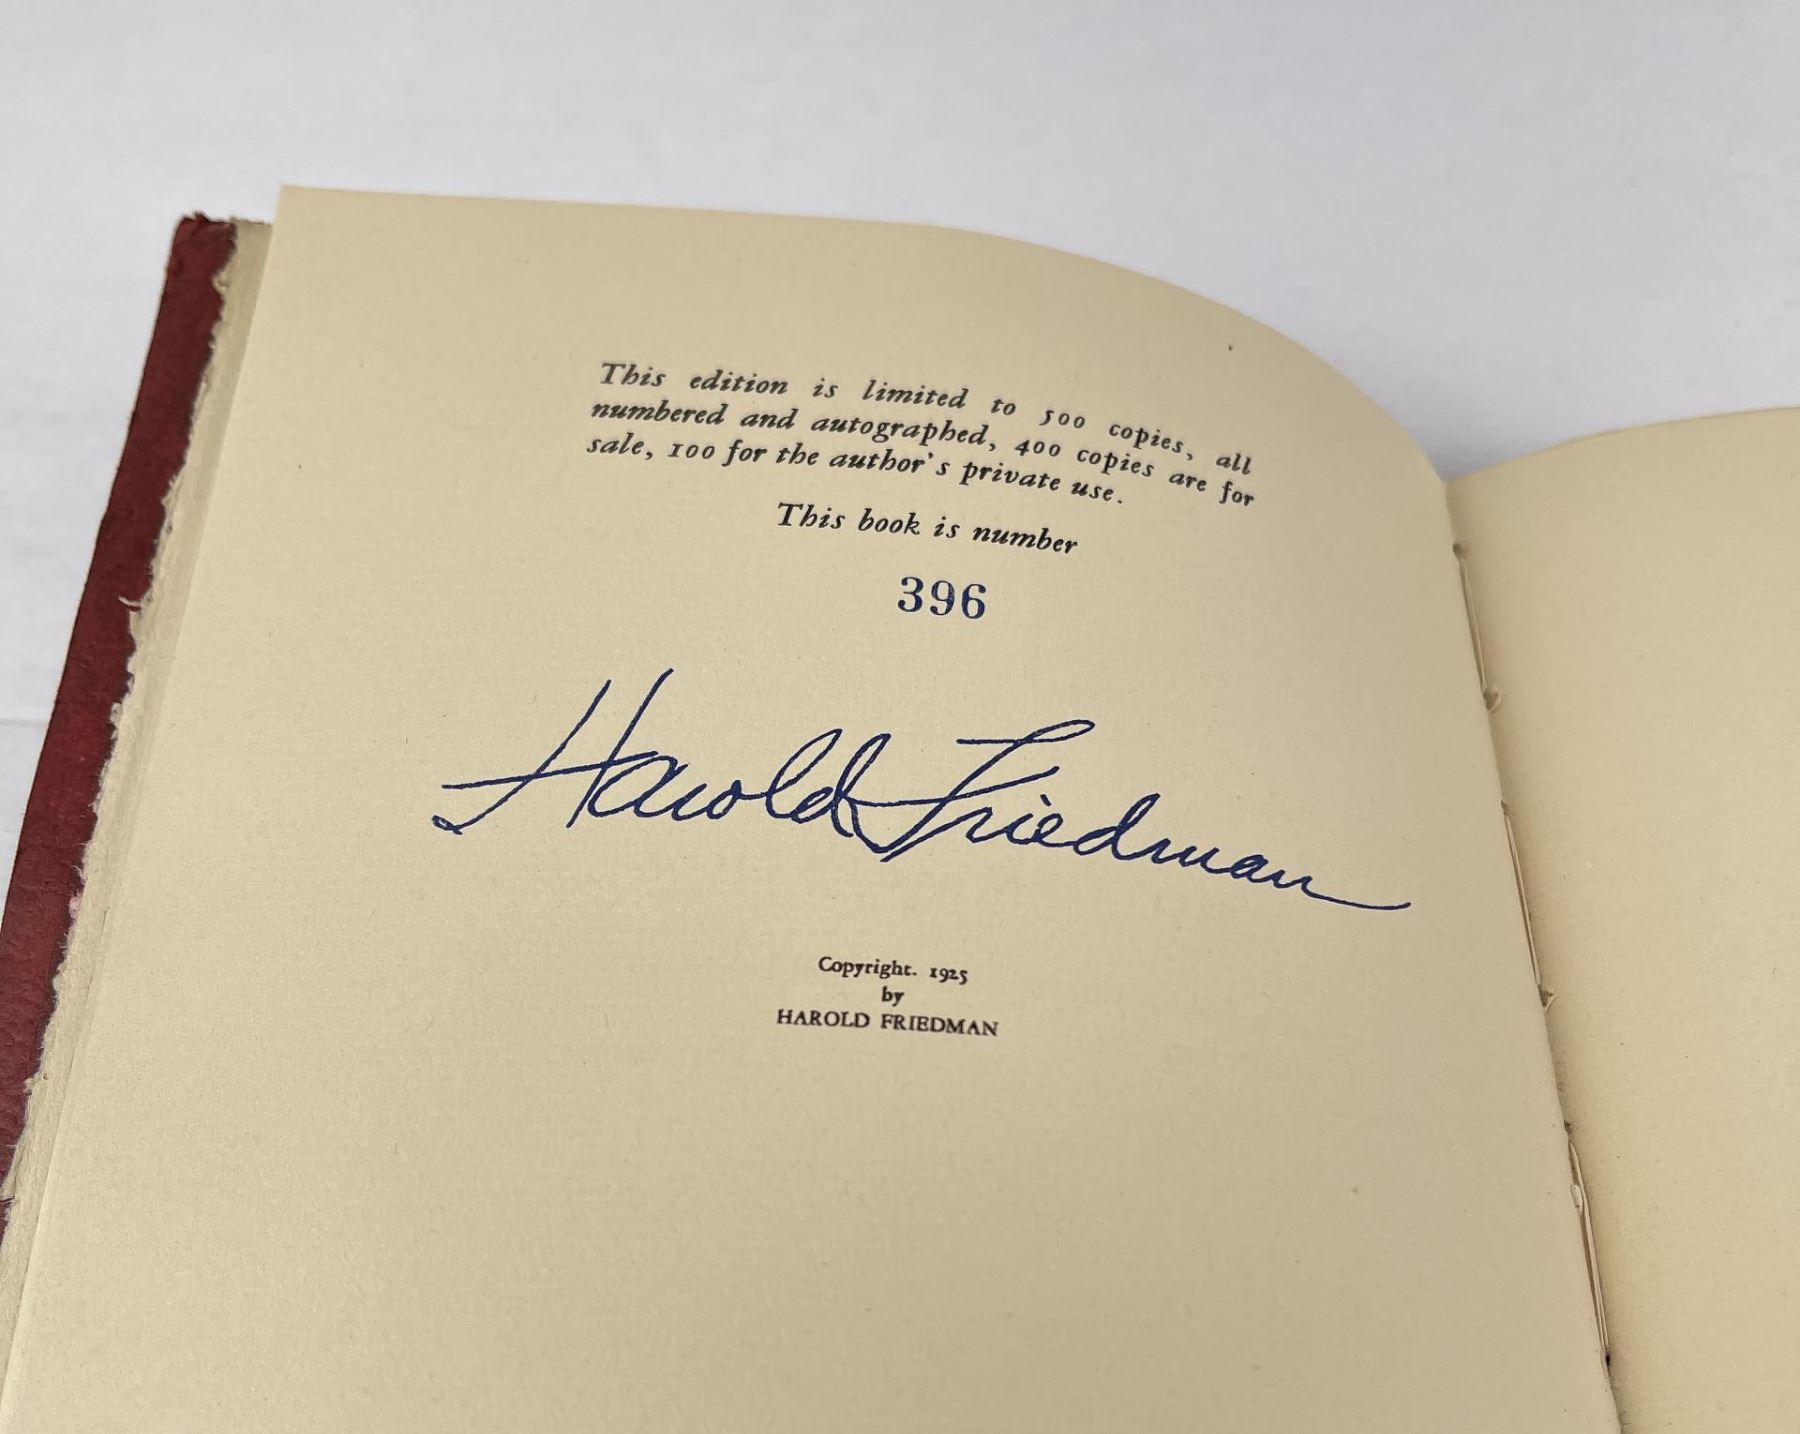 This edition is limited to 500 copies, all
numbered and autographed, 400 copies are for
sale, 100 for the author's private use.
This book is number
396
Harold Friedman
Copyright. 1925
by
HAROLD FRIEDMAN